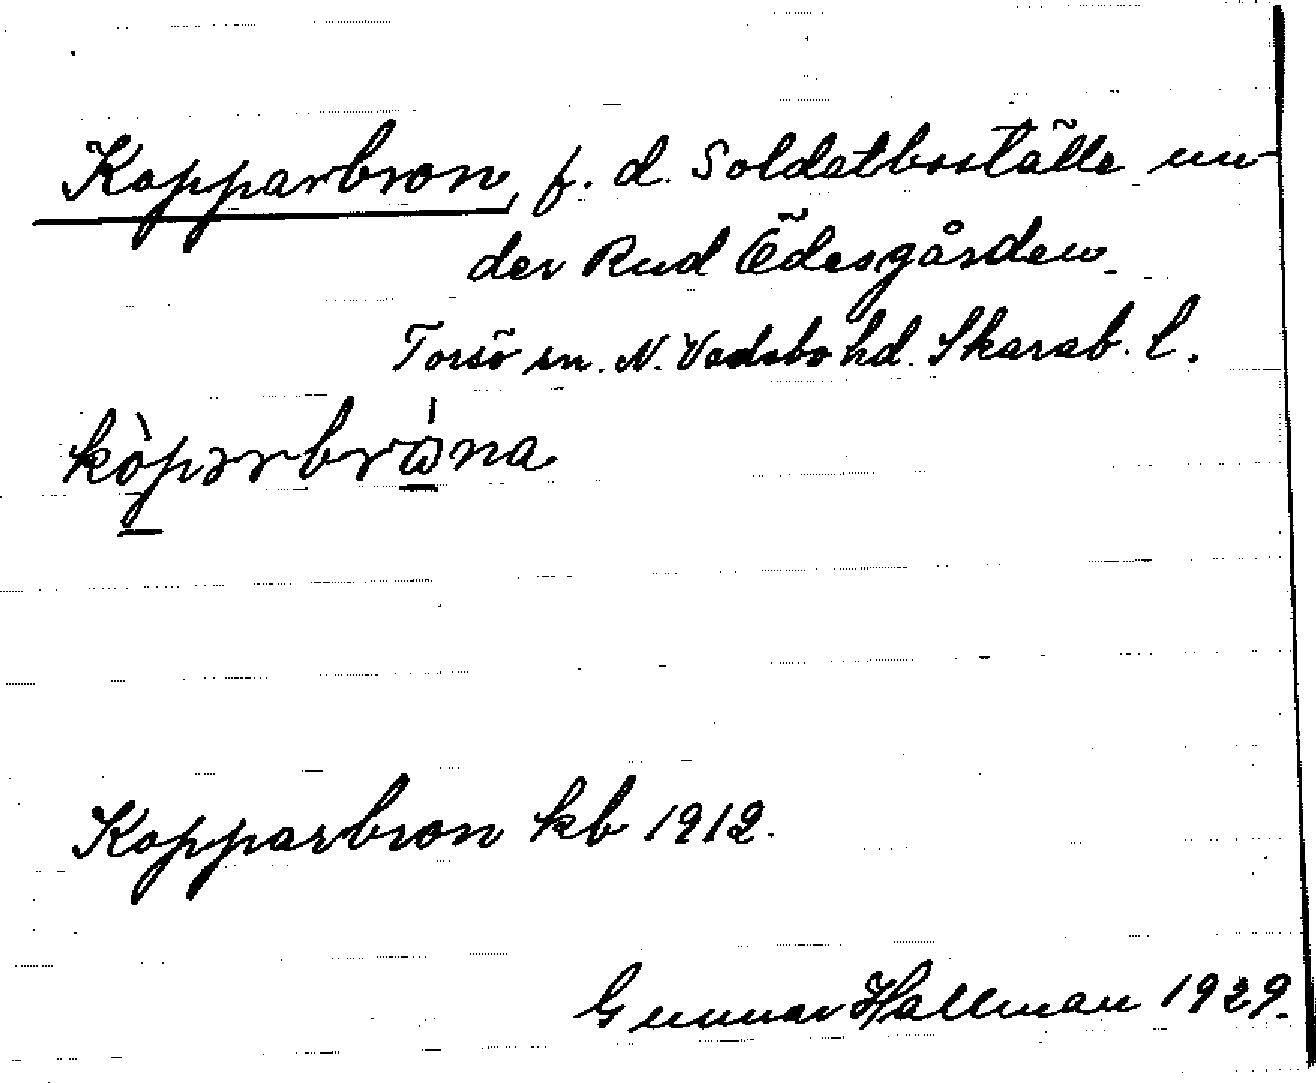 Kopparbron, f. d. Soldatboställe un-
der Rud Ödesgården
Torsö sn. N. Vadsbo hd. Skarab. l.
kòpərbrɷ́na
Kopparbron kb 1912.
Gunnar Hallman 1929.